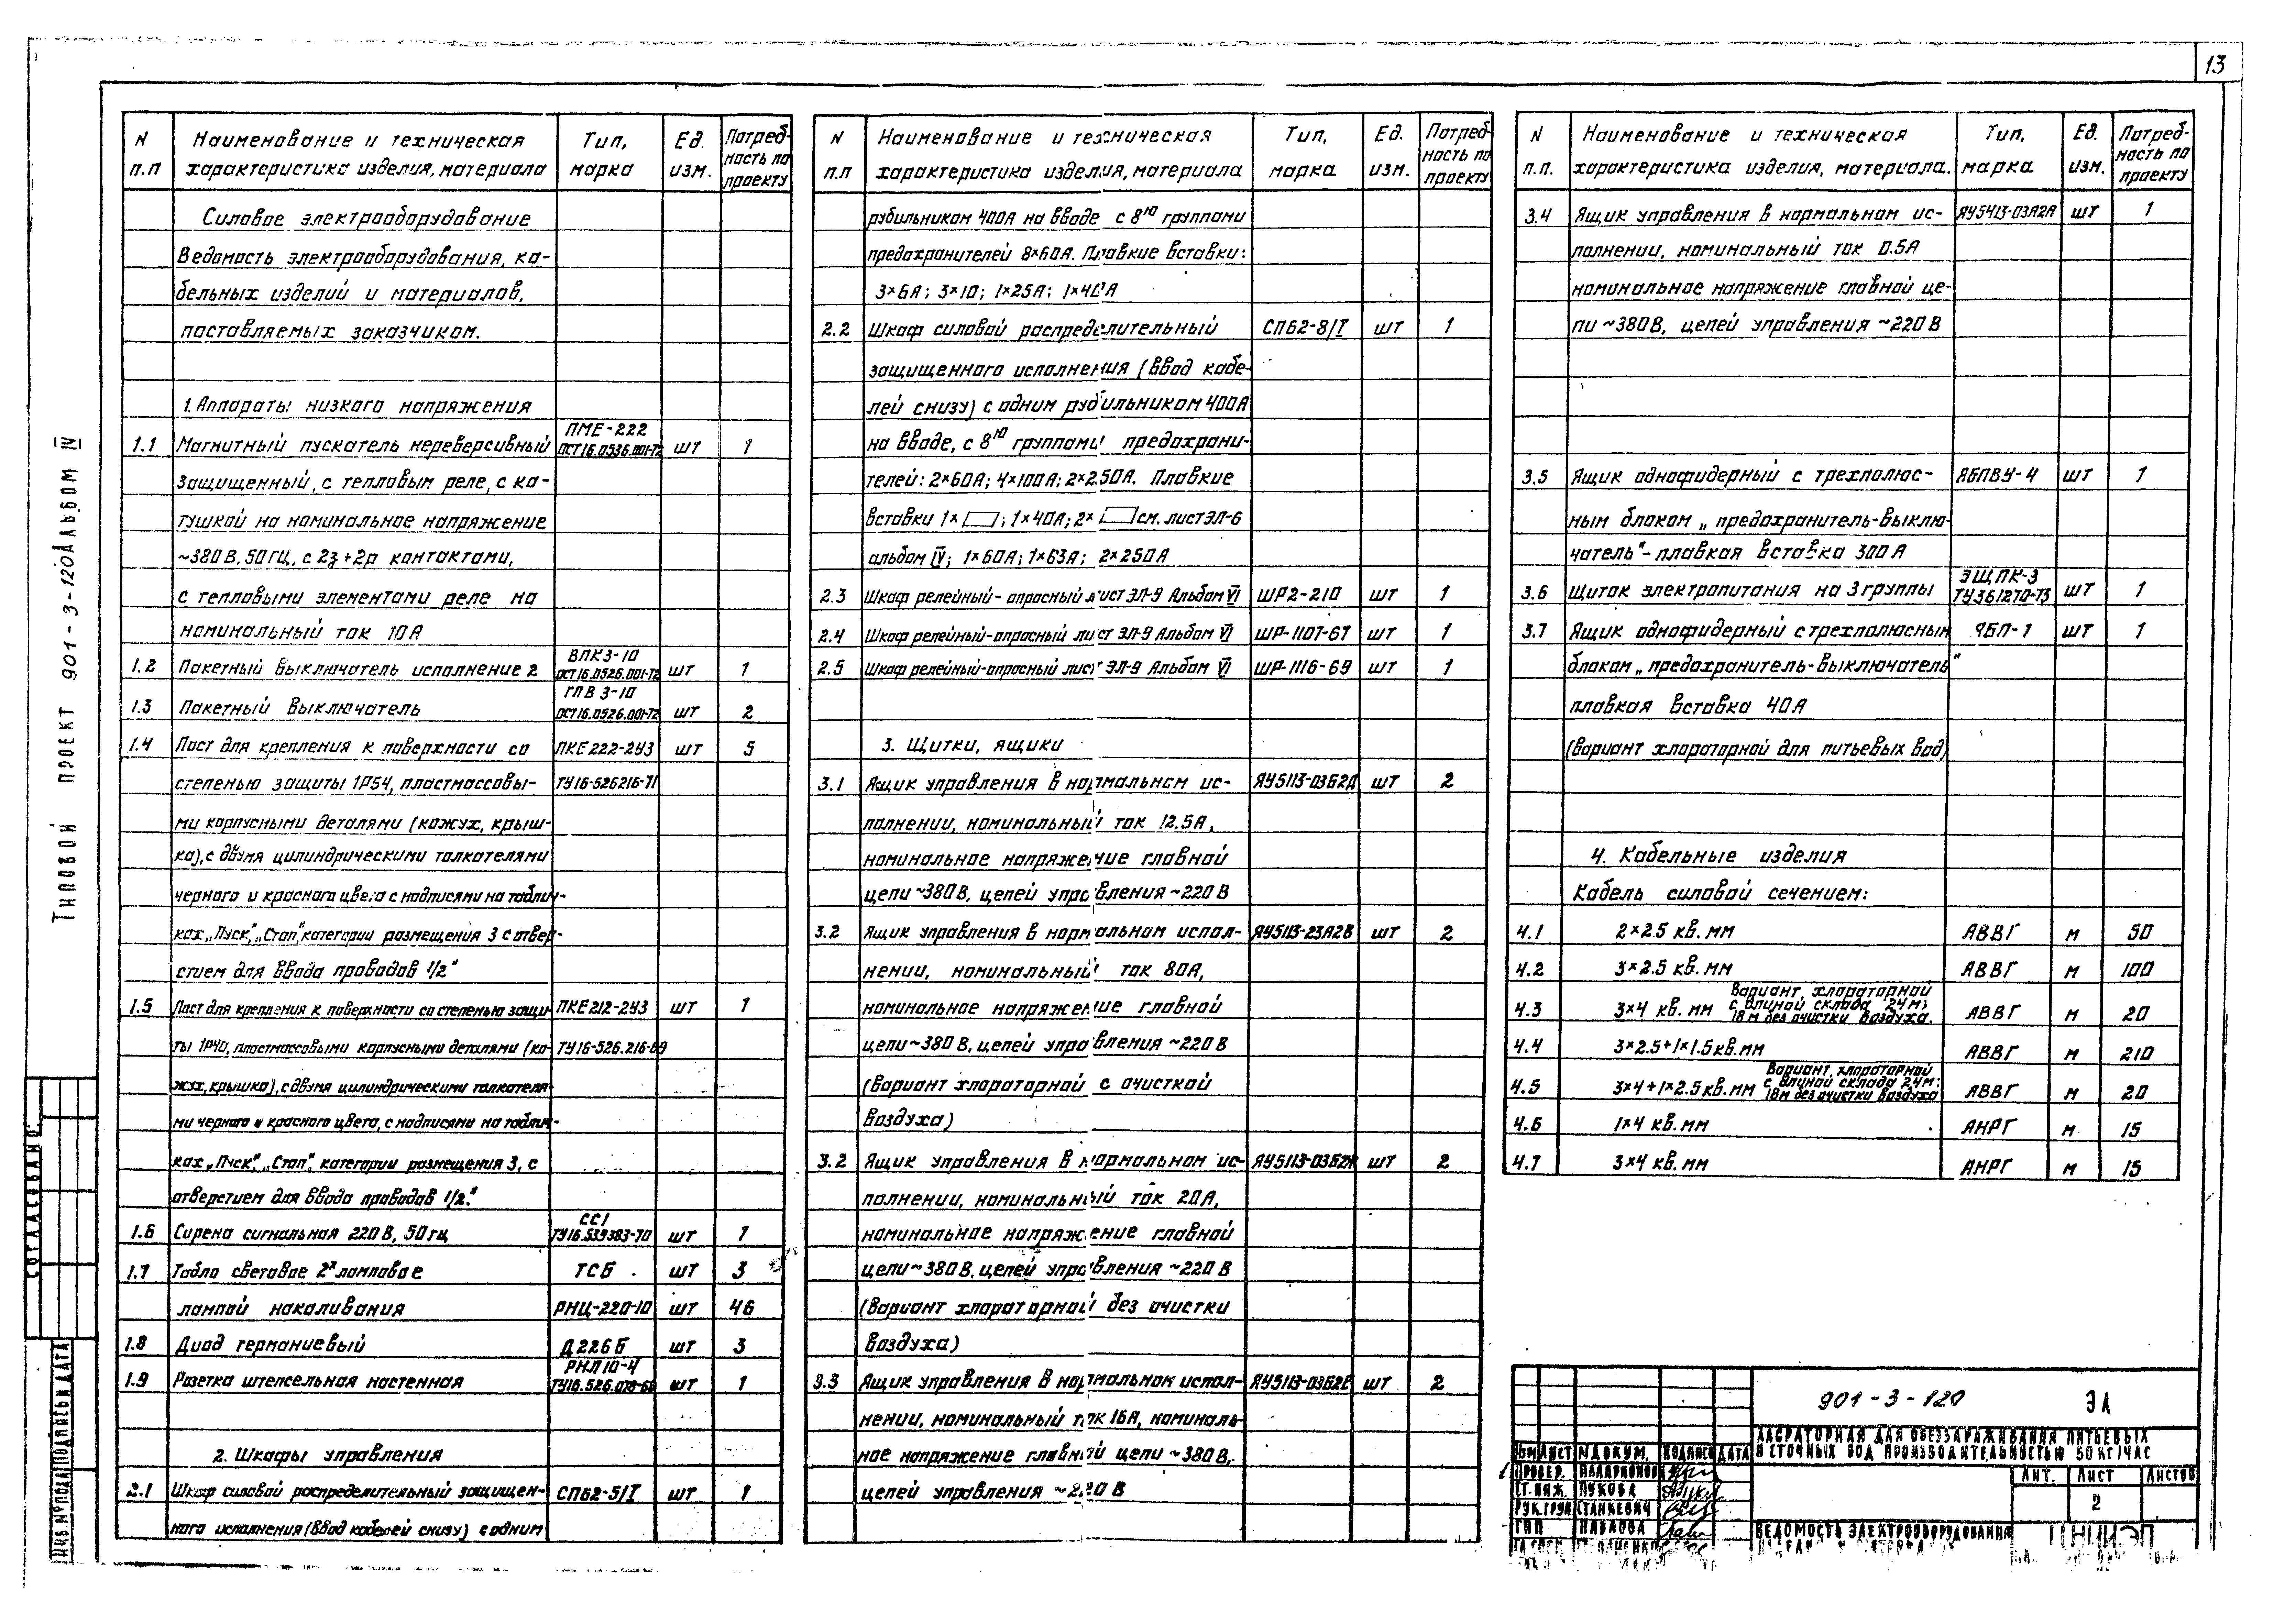 13
Типовой проект 901-3-120 Альбом IV
N п.п
Наименование и техническая характеристика изделия, материала
Тип, марка
Ед. изм.
Потребность по проекту
Силовое электрооборудование
Ведомость электрооборудования, ка-
бельных изделий и материалов,
поставляемых заказчиком.
1. Аппараты низкого напряжения
ПМЕ-222
1.1 Магнитный пускатель нереверсивный ОСТ16.0536.001-72 шт 1
защищенный, с тепловым реле, с ка-
тушкой на номинальное напряжение
~380В, 50гц, с 2з+2р контактами,
с тепловыми элементами реле на
номинальный ток 10А
ВПК3-10
1.2 Пакетный выключатель исполнение 2 ОСТ16.0526.001-72 шт 1
ГПВ 3-10
1.3 Пакетный выключатель ОСТ16.0526.001-72 шт 2
1.4 Пост для крепления к поверхности со ПКЕ222-2У3 шт 5
степенью защиты 1Р54, пластмассовы- ТУ16-526216-71
ми корпусными деталями (кожух, крыш-
ка), с двумя цилиндрическими толкателями
черного и красного цвета с надписями на таблич-
ках „Пуск", „Стоп", категории размещения 3 с отвер-
стием для ввода проводов 1/2"
1.5 Пост для крепления к поверхности со степенью защи- ПКЕ212-2У3 шт 1
ты 1Р40, пластмассовыми корпусными деталями (ко- ТУ16-526.216-69
жух, крышка), с двумя цилиндрическими толкателя-
ми черного и красного цвета, с надписями на таблич-
ках „Пуск", „Стоп", категории размещения 3, с
отверстием для ввода проводов 1/2."
СС1
1.6 Сирена сигнальная 220В, 50гц ТУ16.539383-70 шт 1
1.7 Табло световое 2х ламповое ТСБ шт 3
лампой накаливания РНЦ-220-10 шт 46
1.8 Диод германиевый Д226Б шт 3
1.9 Розетка штепсельная настенная шт 1
2. Шкафы управления
2.1 Шкаф силовой распределительный защищен- СП62-5/I шт 1
ного исполнения (ввод кабелей снизу) с одним
N п.п
Наименование и техническая характеристика изделия, материала
Тип, марка
Ед. изм.
Потребность по проекту
рубильником 400А на вводе с 8ю группами
предохранителей 8×60А. Плавкие вставки:
3×6А; 3×10; 1×25А; 1×40А
2.2 Шкаф силовой распределительный СП62-8/I шт 1
защищенного исполнения (ввод кабе-
лей снизу) с одним рубильником 400А
на вводе, с 8ю группами предохрани-
телей: 2×60А; 4×100А; 2×250А. Плавкие
вставки 1× ; 1×40А; 2× см. лист ЭЛ-6
альбом IV; 1×60А; 1×63А; 2×250А
2.3 Шкаф релейный-опросный лист ЭЛ-9 Альбом VI ШР2-210 шт 1
2.4 Шкаф релейный-опросный лист ЭЛ-9 Альбом VI ШР-1107-67 шт 1
2.5 Шкаф релейный-опросный лист ЭЛ-9 Альбом VI ШР-1116-69 шт 1
3. Щитки, ящики
3.1 Ящик управления в нормальном ис- ЯУ5113-03Б2Д шт 2
полнении, номинальный ток 12.5А,
номинальное напряжение главной
цепи ~380В, цепей управления ~220В
3.2 Ящик управления в нормальном испол- ЯУ5113-23А2В шт 2
нении, номинальный ток 80А,
номинальное напряжение главной
цепи ~380В, цепей управления ~220В
(Вариант хлораторной с очисткой
воздуха)
3.2 Ящик управления в нормальном ис- шт 2
полнении, номинальный ток 20А,
номинальное напряжение главной
цепи ~380В, цепей управления ~220В
(Вариант хлораторной без очистки
воздуха)
3.3 Ящик управления в нормальном испол- ЯУ5113-03Б2Е шт 2
нении, номинальный ток 16А, номиналь-
ное напряжение главной цепи ~380В,
цепей управления ~220В
N п.п.
Наименование и техническая характеристика изделия, материала.
Тип, марка
Ед. изм.
Потребность по проекту
3.4 Ящик управления в нормальном ис- ЯУ5413-03А2А шт 1
полнении, номинальный ток 0.5А
номинальное напряжение главной це-
пи ~380В, цепей управления ~220В
3.5 Ящик однофидерный с трехполюс- ЯБПВУ-4 шт 1
ным блоком „предохранитель-выклю-
чатель"-плавкая вставка 300А
ЭЩПК-3
3.6 Щиток электропитания на 3 группы ТУ361270-73 шт 1
3.7 Ящик однофидерный с трехполюсным ЯБП-1 шт 1
блоком „предохранитель-выключатель"
плавкая вставка 40А
(Вариант хлораторной для питьевых вод)
4. Кабельные изделия
Кабель силовой сечением:
4.1 2×2.5 кв. мм АВВГ м 50
4.2 3×2.5 кв. мм АВВГ м 100
4.3 3×4 кв. мм Вариант хлораторной с длиной склада 24м; 18м без очистки воздуха. АВВГ м 20
4.4 3×2.5+1×1.5 кв. мм АВВГ м 210
4.5 3×4+1×2.5 кв. мм Вариант хлораторной с длиной склада 24м; 18м без очистки воздуха АВВГ м 20
4.6 1×4 кв. мм АНРГ м 15
4.7 3×4 кв. мм АНРГ м 15
Согласовано:
Инв.№ подл Подпись и дата
901-3-120 ЭЛ
Хлораторная для обеззараживания питьевых
и сточных вод производительностью 50 кг/час
Изм Лист № докум. Подпись Дата
Провер.
Ст. инж. Пукова
Рук. груп Станкевич
ГИП Павлова
Лит. Лист Листов
2
Ведомость электрооборудования
ЦНИИЭП